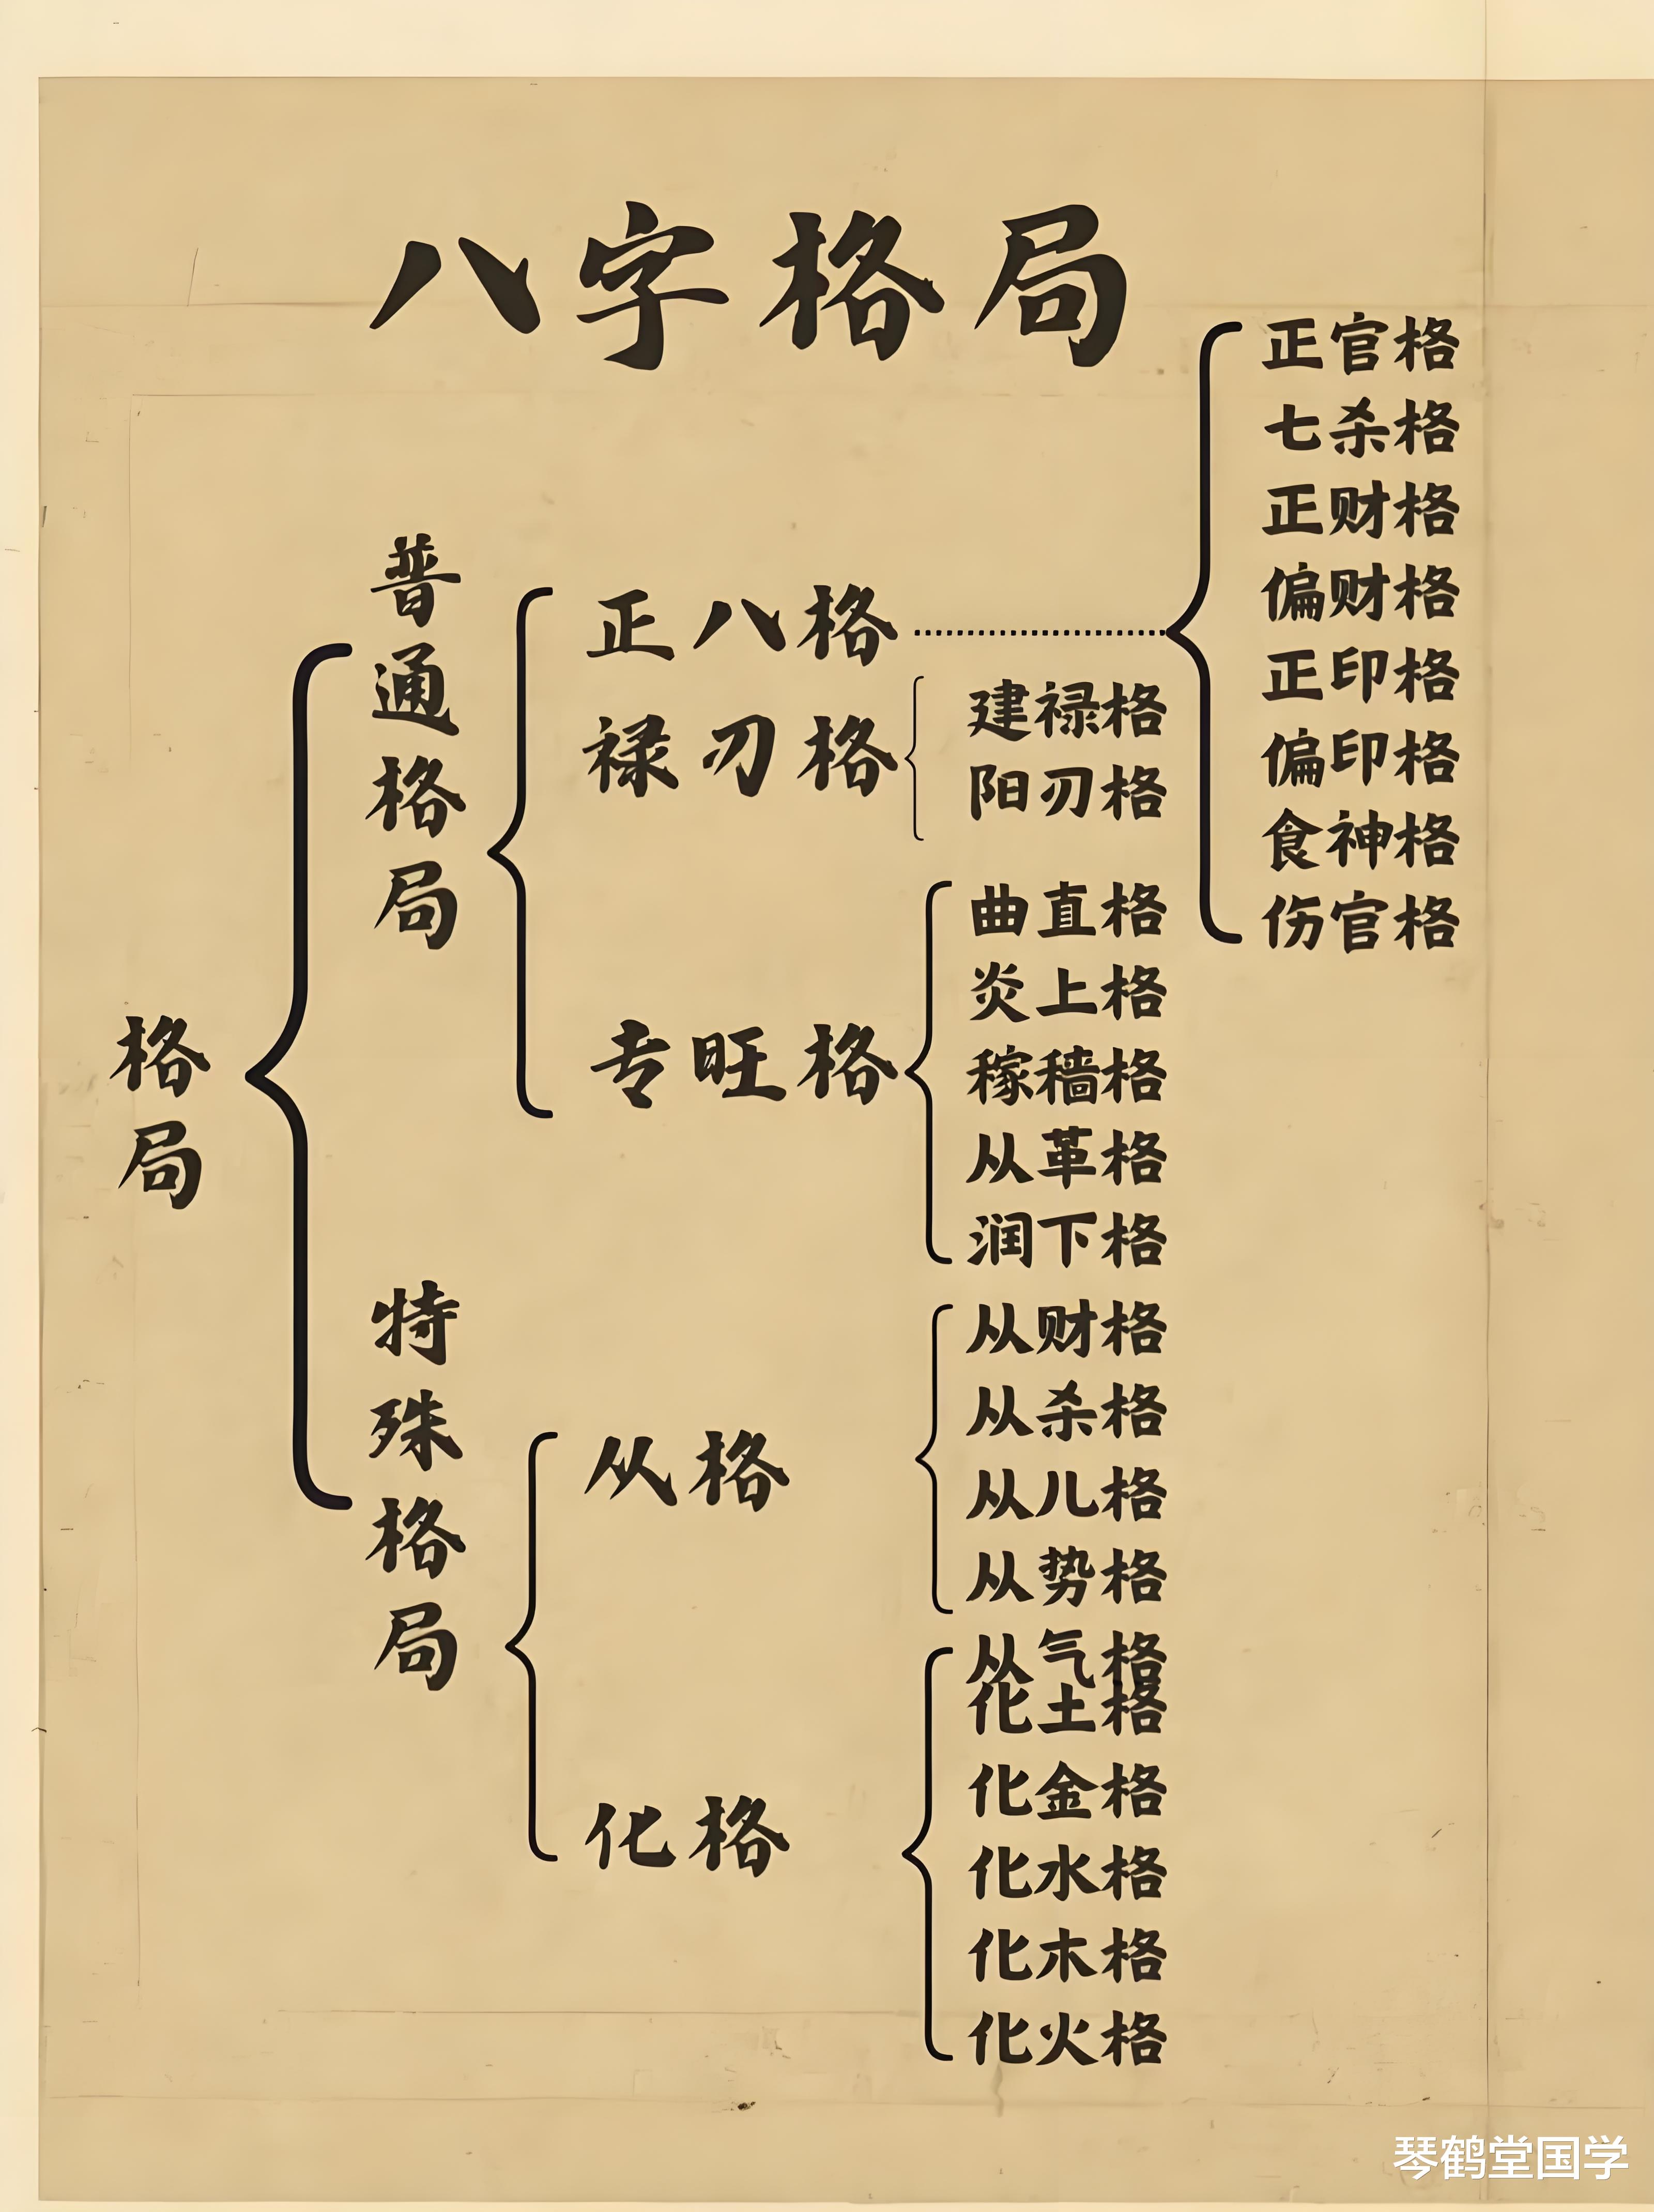 八字格局
格局
普通格局
正八格
正官格
七杀格
正财格
偏财格
正印格
偏印格
食神格
伤官格
禄刃格
建禄格
阳刃格
专旺格
曲直格
炎上格
稼穑格
从革格
润下格
特殊格局
从格
从财格
从杀格
从儿格
从势格
从气格
化格
化土格
化金格
化水格
化木格
化火格
琴鹤堂国学